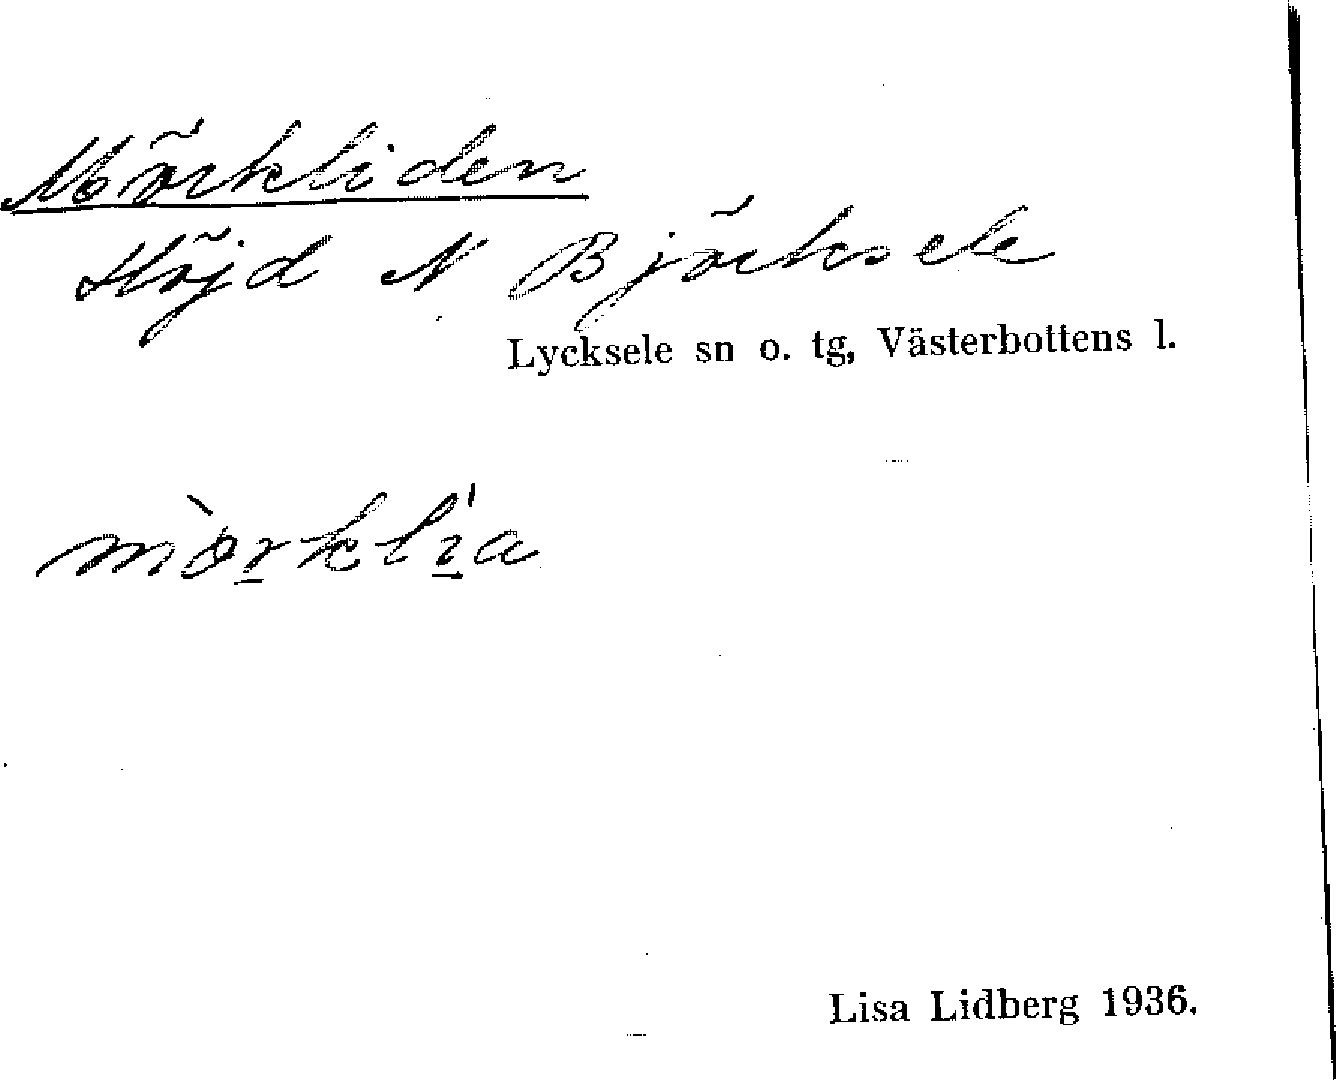 Mörkliden
Höjd N Björksele
Lycksele sn o. tg, Västerbottens l.
mòrklı́a
Lisa Lidberg 1936.